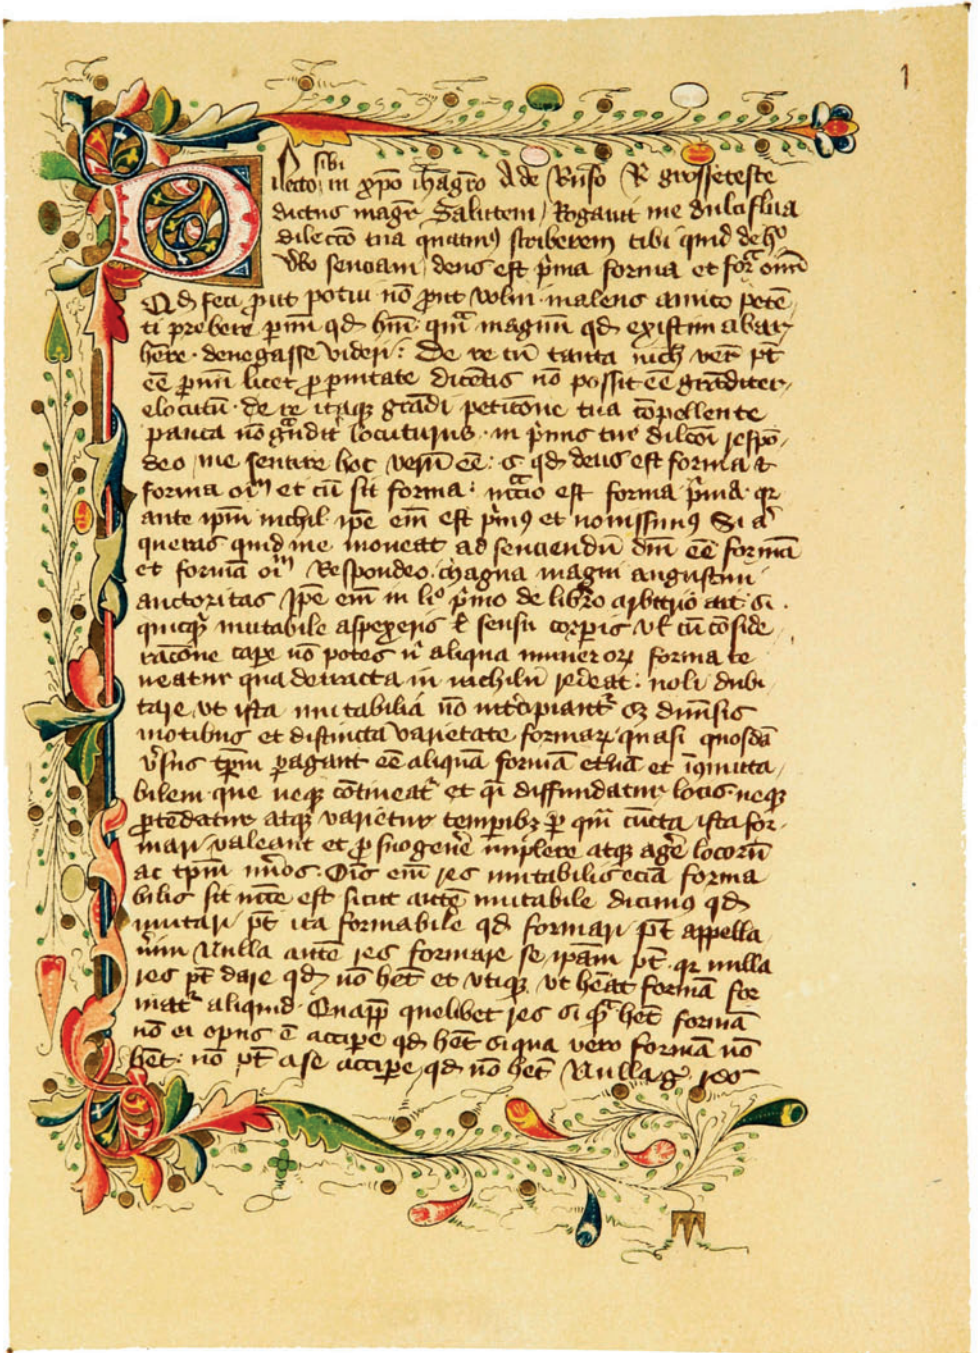 1
Dilecto sibi in xp̄o mag̅ro Ade Ruf̅o R̅ grosseteste
dictus mag̅r Salutem Rogauit me dulciflua
dilecc̅o tua quatin9 scriberem tibi quid de h°
v̅bo senciam deus est p̅ma forma et for̅a oi̅m
Qd̅ feci p̅ut potui no̅ p̅ut volui malens amico pete̅
ti prebere p̅uu̅ qd̅ h̅m q̅m magnu̅ qd̅ existimabar
h̅ere denegasse videri De re cu̅ tanta nich̅ ver̅ p̅t
e̅e p̅uu̅ licet p̅ p̅uitate dice̅tis no̅ possit e̅e gra̅diter
elocutu̅ de re itaq3 gra̅di petic̅one tua co̅pellente
pauca no̅ g̅ndit̅ locuturus in p̅mis tue dilc̅oi respo̅
deo me sentire hoc veru̅ e̅e s̅ qd̅ deus est forma &
forma oi̅m et cu̅ sit forma n̅c̅c̅io est forma p̅ma qr
ante ip̅m nichil ip̅e em̅ est p̅m9 et nouissim9 Si a̅
queras quid me moueat ad senciendu̅ dm̅ e̅e forma̅
et forma̅ oi̅m Respondeo magna magni augustini
auctoritas Ip̅e em̅ in li° p̅mo de libero arbitrio ait si
quicq̅ mutabile aspexeris l̅ sensu corp̅is vl̅ cu̅ co̅side
rac̅one cape no̅ potes n̅ aliqua numeror̅ forma te
neatur qua detracta in nichilu̅ red̅eat noli dubi
tare vt ista mutabilia no̅ int̅cipiant̅ s3 dim̅sis
motibus et distincta varietate formar̅ quasi quosda̅
v̅sus tp̅m p̅agant e̅e aliqua̅ forma̅ et̅na̅ et i̅co̅muta
bilem que neq3 co̅tineat̅ et q̅i diffundatur locis neq3
p̅te̅datur atq3 varietur temp̅ib3 p̅ qua̅ cu̅cta ista for
mari valeant et p̅ suo gen̅e implere atq3 ag̅e locoru̅
ac tp̅m nu̅os Om̅s em̅ res mutabilis ecia̅ forma
bilis sit n̅c̅e est sicut aute̅ mutabile dicim9 qd̅
mutari p̅t ita formabile qd̅ formari p̅t appella
u̅im Nulla aute̅ res formare se ip̅am p̅t qr nulla
res p̅t dare qd̅ no̅ h̅et et vtiq3 vt h̅eat forma̅ for
mat̅ aliquid Quap̅p̅ quelibet res si q̅ h̅et forma̅
no̅ ei opus e̅ accipe qd̅ h̅et si qua vero forma̅ no̅
h̅et no̅ p̅t a se accipe qd̅ no̅ h̅et Nulla g° res